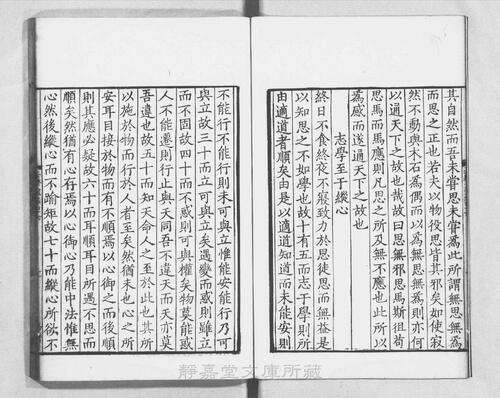 其自然而吾未嘗思未嘗爲此所謂無思無爲
而思之正也若夫以物役思皆其邪矣如使寂
然不動與木石爲偶而以爲無思無爲則亦何
以通天下之故也哉故曰思無邪思馬斯徂苟
思馬而馬應則凡思之所及無不應也此所以
爲感而遂通天下之故也
志學至于縱心
終日不食終夜不寢致力於思徒思而無益是
以知思之不如學也故十有五而志于學則所
由適道者順矣由是以適道知道而未能安則
不能行不能行則未可與立惟能安能行乃可
與立故三十而立可與立矣遇變而惑則雖立
而不固故四十而不惑則可與權矣物莫能惑
人不能遷則行止與天同吾不違天而天亦莫
吾違也故五十而知天命人之至於此也其所
以施於物而行於人者至矣然猶未也心之所
安耳目接於物而有不順焉以心御之而後順
則其應必疑故六十而耳順耳目所遇不思而
順矣然猶有心存焉以心御心乃能中法惟無
心然後縱心而不踰矩故七十而縱心所欲不
靜嘉堂文庫所藏